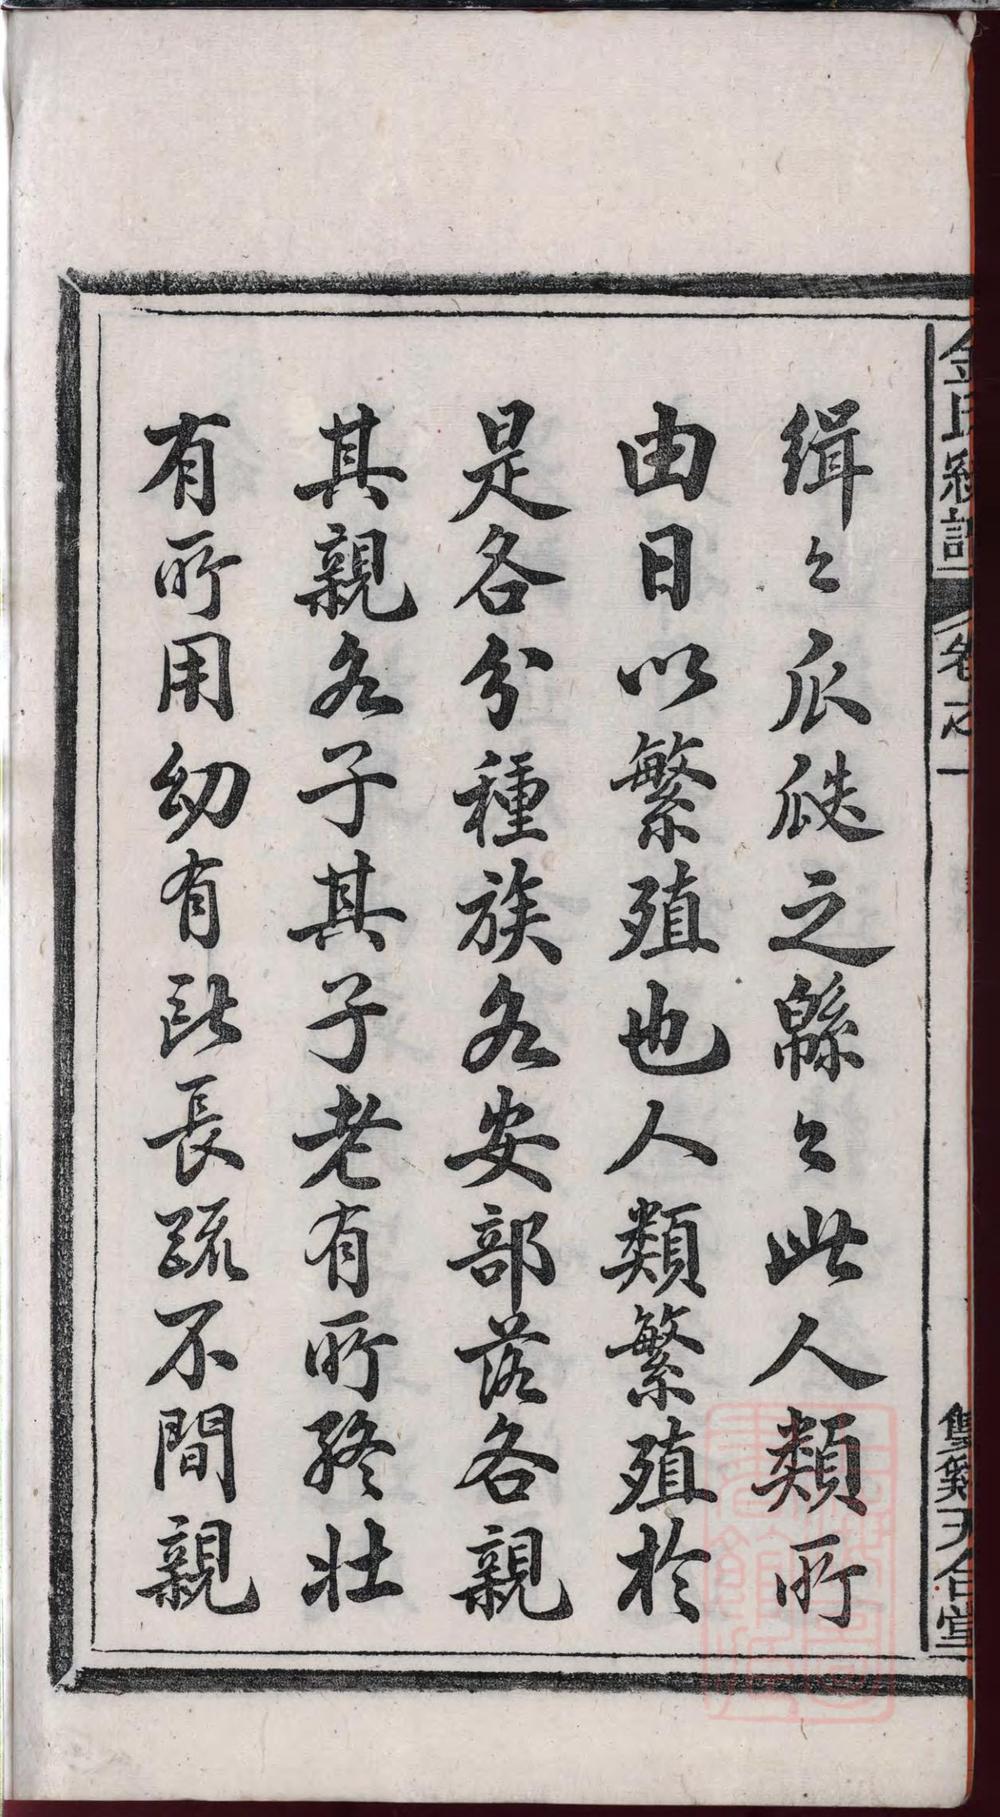 金氏統譜 卷之一 雙鷄天合堂
緝々瓜瓞之緜々此人類所
由日以繁殖也人類繁殖於
是各分種族各安部落各親
其親各子其子老有所終壯
有所用幼有所長疏不間親